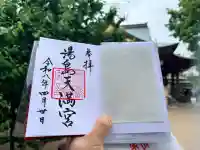 奉拝
湯島天満宮
令和八年四月廿日